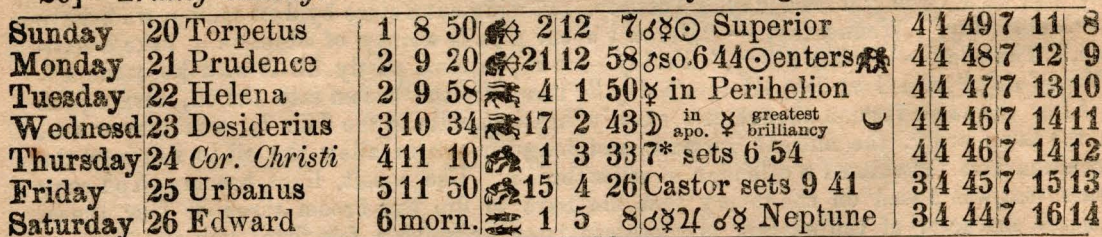 Sunday 20 Torpetus 1 8 50 2 12 7 ☌☿☉ Superior 4 4 49 7 11 8
Monday 21 Prudence 2 9 20 21 12 58 ♂so. 6 44 ☉ enters 4 4 48 7 12 9
Tuesday 22 Helena 2 9 58 4 1 50 ☿ in Perihelion 4 4 47 7 13 10
Wednesd 23 Desiderius 3 10 34 17 2 43 ☽ in apo. ☿ greatest brilliancy 4 4 46 7 14 11
Thursday 24 Cor. Christi 4 11 10 1 3 33 7* sets 6 54 4 4 46 7 14 12
Friday 25 Urbanus 5 11 50 15 4 26 Castor sets 9 41 3 4 45 7 15 13
Saturday 26 Edward 6 morn. 1 5 8 ☌☿♃ ☌☿ Neptune 3 4 44 7 16 14